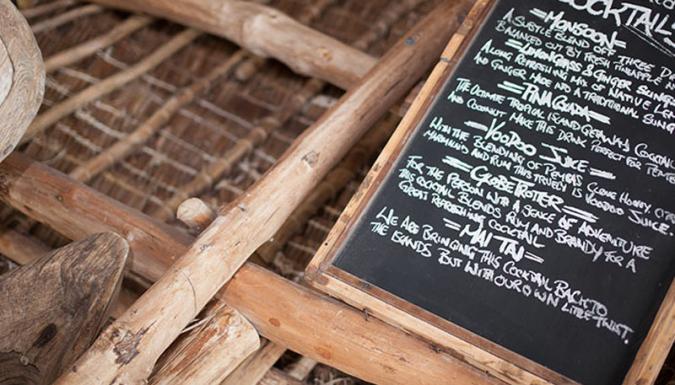 COCKTAIL
=MONSOON=
A SUBTLE BLEND OFF THREE
BALANCED OUT BY FRESH PINEAPPLE
=LEMONGRASS & GINGER SLING
A LONG REFRESHING MIX OF NATIVE
AND GINGER MIXED INTO A TRADITIONAL SLING
=PINA COLADA=
THE ULTIMATE TROPICAL ISLAND GETAWAY COCKTAIL
AND COCONUT MAKE THIS DRINK PERFECT FOR
=VOODOO JUICE=
WITH THE BLENDING OF PEMBAS CLOVE HONEY,
AND RUM THIS TRUELY IS VOODOO JUICE.
=GLOBETROTTER=
FOR THE PERSON WITH A SENCE OF ADVENTURE
THIS COCKTAIL BLENDS RUM AND BRANDY FOR A
GREAT REFRESHING COCKTAIL
=MAI TAI=
WE ARE BRINGING THIS COCKTAIL BACK TO
THE ISLANDS BUT WITH OUR OWN LITTLE TWIST.